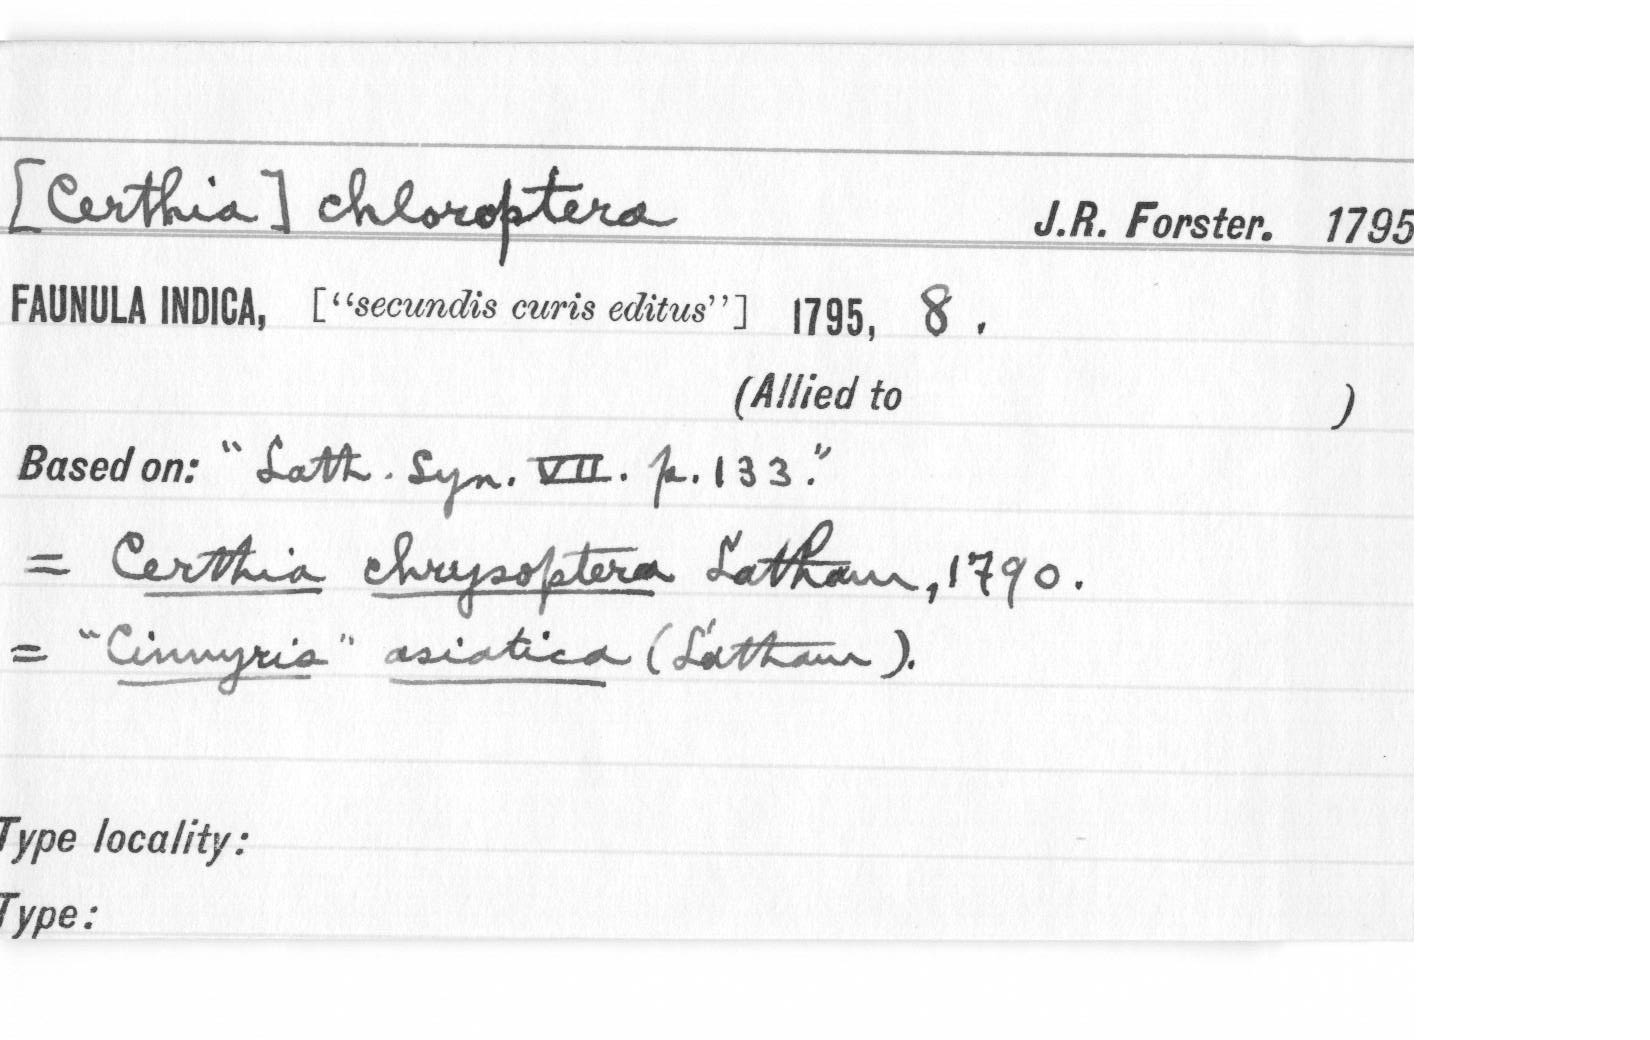 [Certhia] chloroptera J.R. Forster. 1795
FAUNULA INDICA, [“secundis curis editus”] 1795, 8.
(Allied to )
Based on: "Lath. Syn. VII. p. 133."
= Certhia chrysoptera Latham, 1790.
= "Cinnyris" asiatica (Latham).
Type locality:
Type: